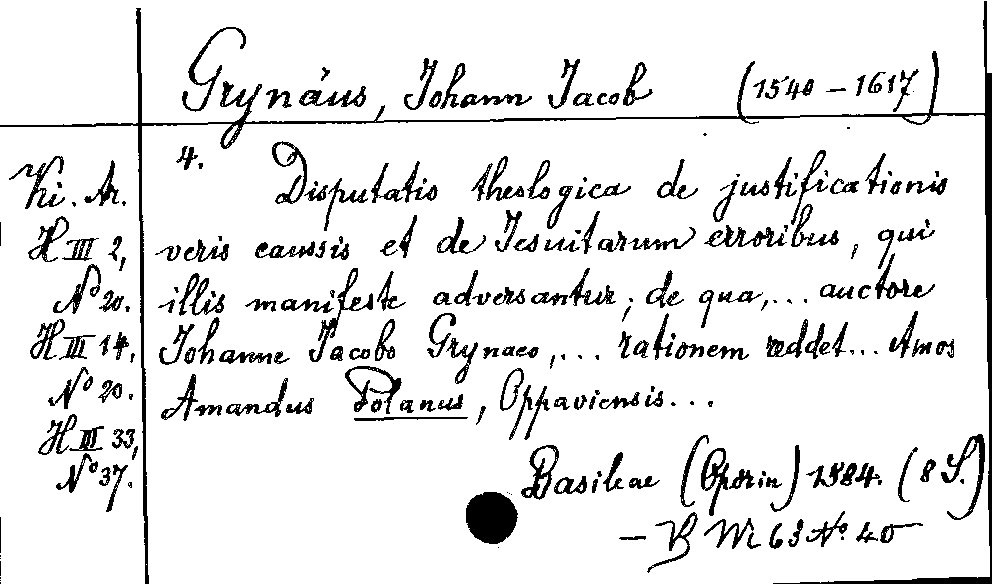 Grynäus, Johann Jacob (1540 – 1617)
4. Disputatio theologica de justificationis
Ki. Ar.
H III 2, veris caussis et de Jesuitarum erroribus, qui
No 20. illis manifeste adversantur; de qua,... auctore
H III 14, Johanne Jacobo Grynaeo,... rationem reddet... Amos
No 20. Amandus Polanus, Oppaviensis...
H III 33,
No 37. Basileae (Oporin) 1584. (8 S.)
– B M 63 No. 40